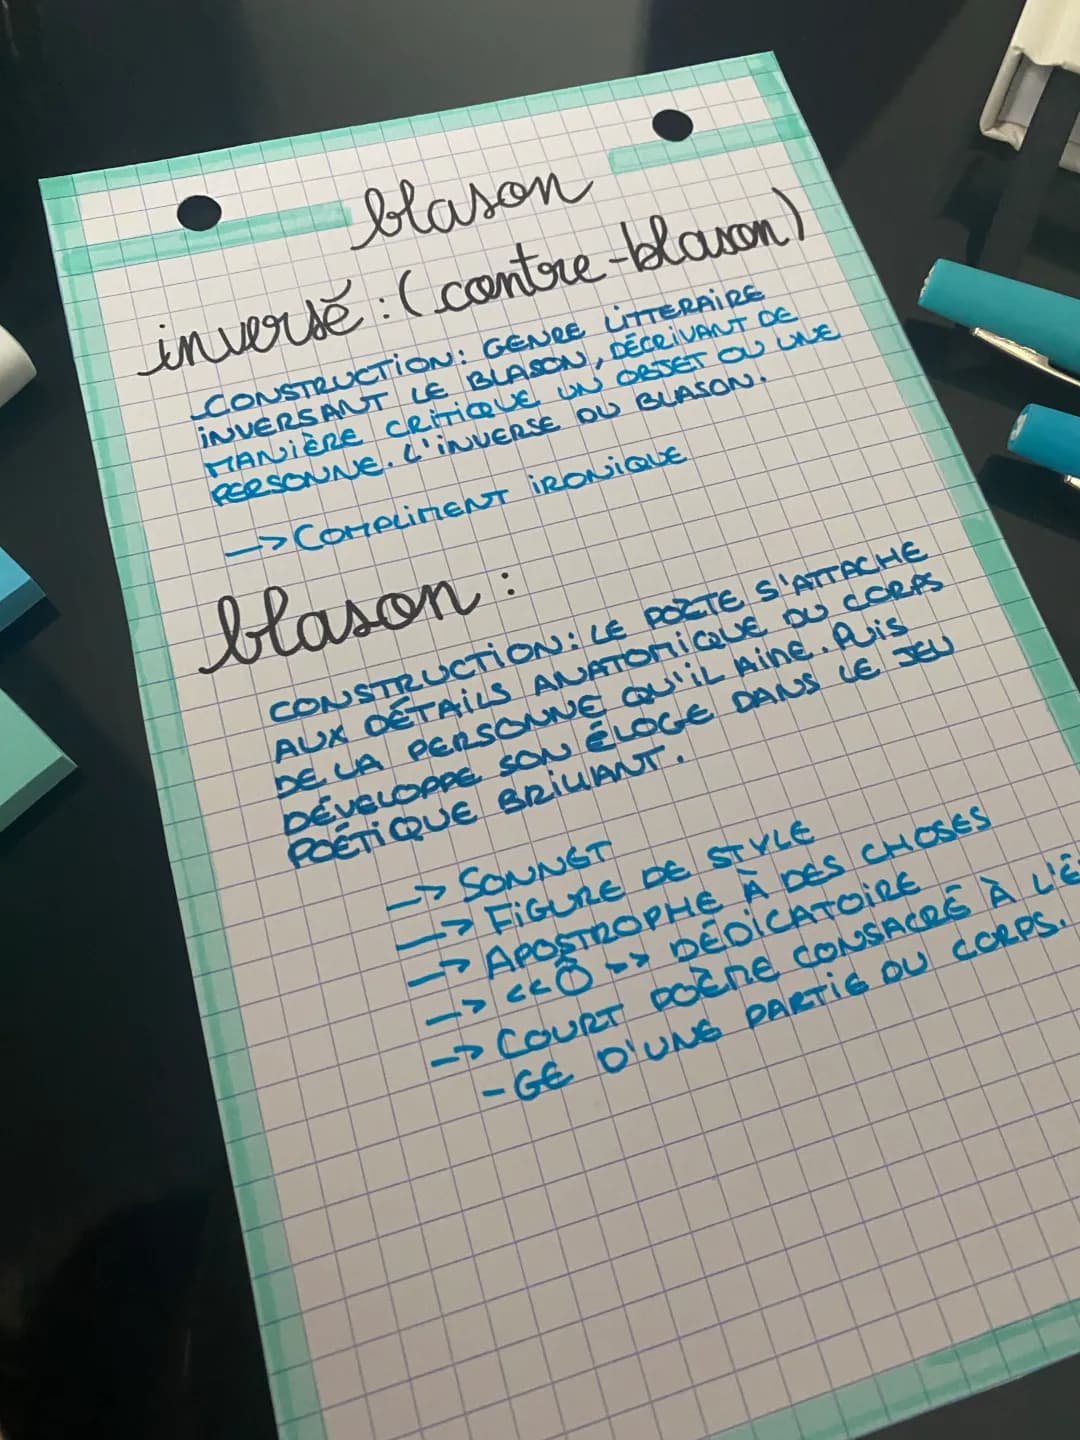 blason
inversé : (contre-blason)
CONSTRUCTION: GENRE LITTERAIRE
INVERSANT LE BLASON, DÉCRIVANT DE
MANIÈRE CRITIQUE UN OBJET OU UNE
PERSONNE. L'INVERSE DU BLASON.
—> COMPLIMENT IRONIQUE
blason :
CONSTRUCTION: LE POÈTE S'ATTACHE
AUX DÉTAILS ANATOMIQUE DU CORPS
DE LA PERSONNE QU'IL AIME. PUIS
DÉVELOPPE SON ÉLOGE DANS LE JEU
POÉTIQUE BRILLANT.
—> SONNET
—> FIGURE DE STYLE
—> APOSTROPHE À DES CHOSES
—> <<Ô >> DÉDICATOIRE
—> COURT POÈME CONSACRÉ À L'É
- GE D'UNE PARTIE DU CORPS.